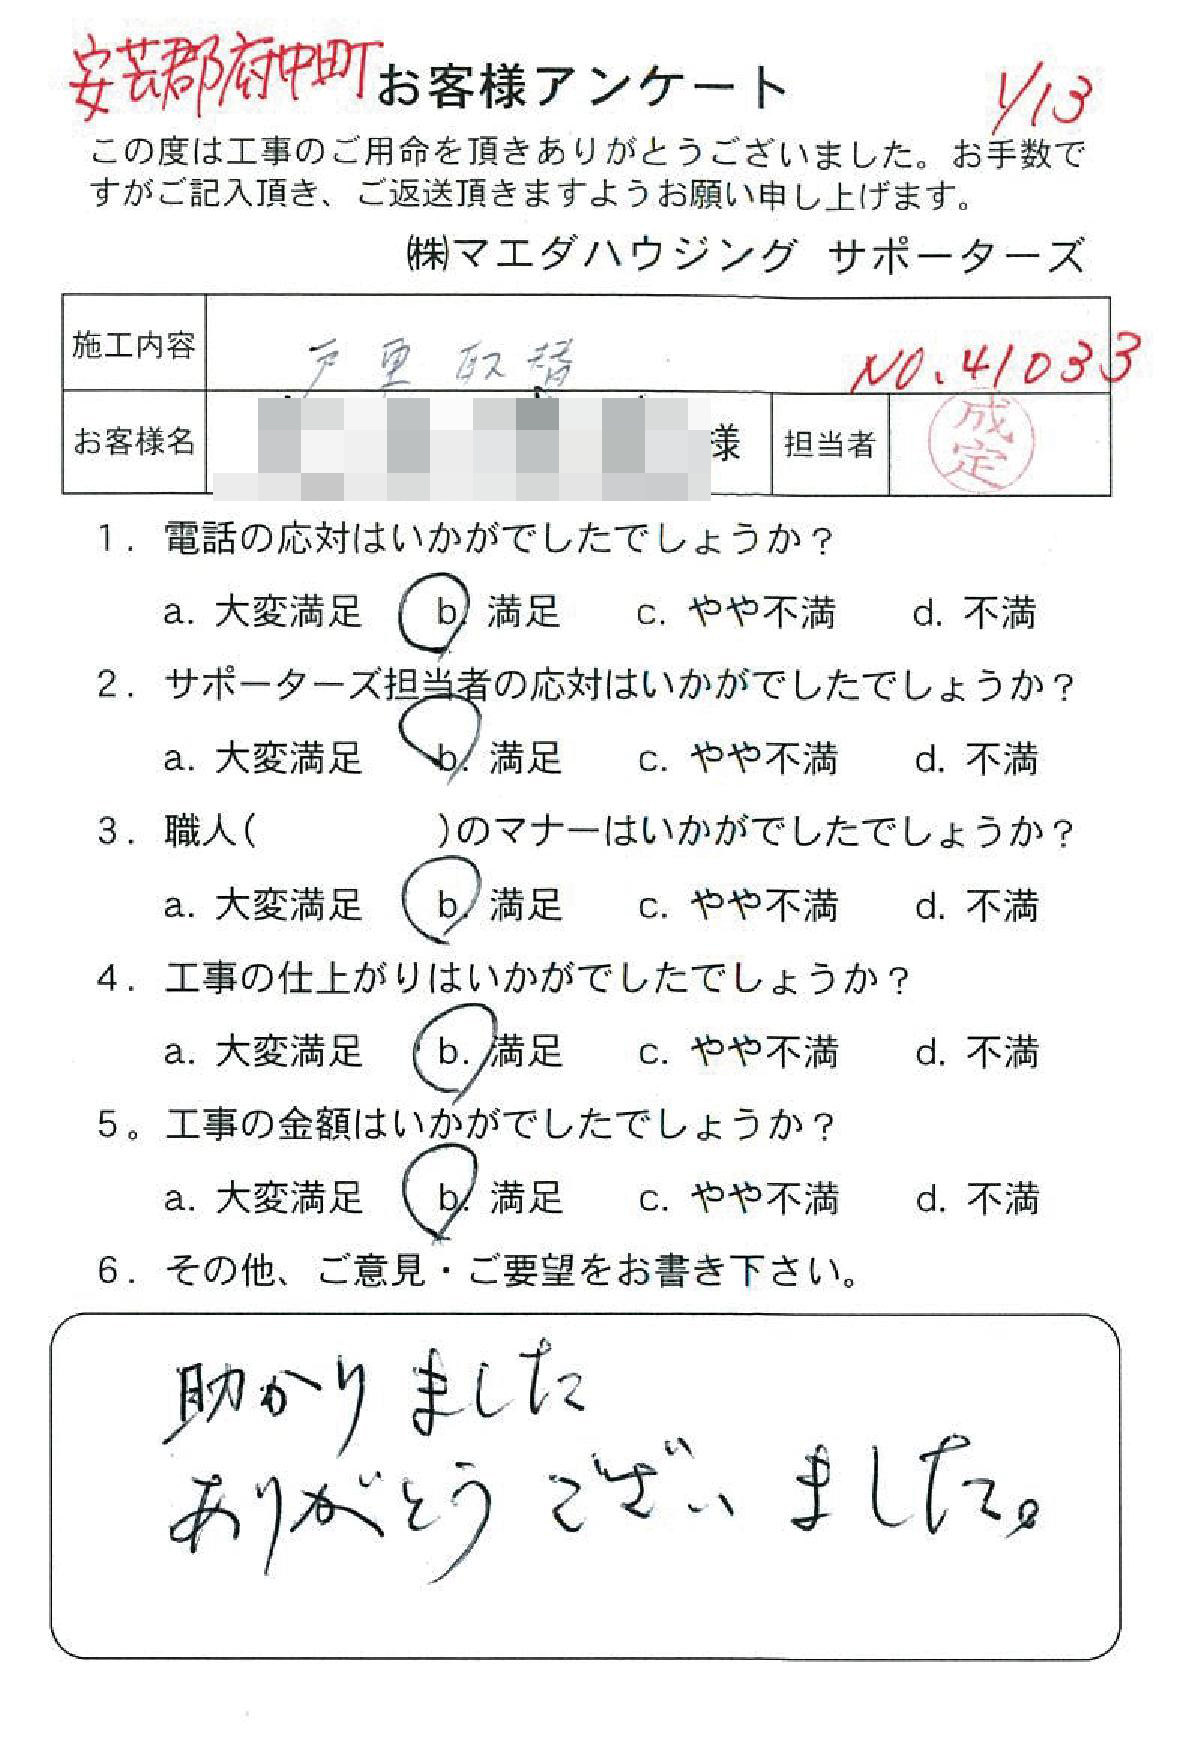 安芸郡府中町 お客様アンケート 1/13
この度は工事のご用命を頂きありがとうございました。お手数で
すがご記入頂き、ご返送頂きますようお願い申し上げます。
㈱マエダハウジング サポーターズ
施工内容 戸車取替 NO.41033
お客様名 様 担当者 成定
1. 電話の応対はいかがでしたでしょうか?
a. 大変満足 b. 満足 c. やや不満 d. 不満
2. サポーターズ担当者の応対はいかがでしたでしょうか?
a. 大変満足 b. 満足 c. やや不満 d. 不満
3. 職人( )のマナーはいかがでしたでしょうか?
a. 大変満足 b. 満足 c. やや不満 d. 不満
4. 工事の仕上がりはいかがでしたでしょうか?
a. 大変満足 b. 満足 c. やや不満 d. 不満
5。工事の金額はいかがでしたでしょうか?
a. 大変満足 b. 満足 c. やや不満 d. 不満
6. その他、ご意見・ご要望をお書き下さい。
助かりました
ありがとうございました。